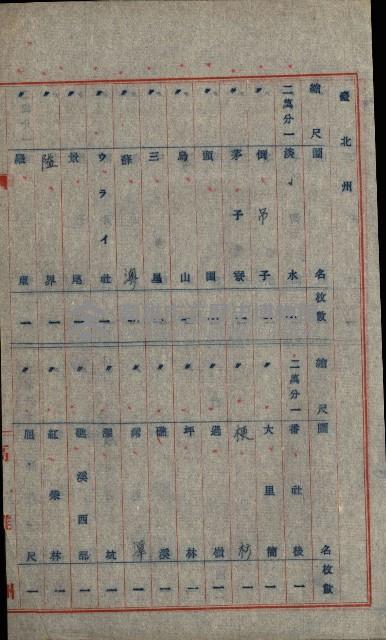 臺北州
縮尺 圖名 枚數
二萬分一 淡水 一
〃 倒吊子 一
〃 茅子寮 一
〃 頭圍 一
〃 烏山 一
〃 三星 一
〃 蘇澳 一
〃 ウライ社 一
〃 景尾 一
〃 隘界 一
〃 一
縮尺 圖名 枚數
二萬分一 番社後 一
〃 大里簡 一
〃 梗枋 一
〃 一
〃 坪林 一
〃 礁溪 一
〃 潭 一
〃 深坑 一
〃 礁溪西部 一
〃 紅柴林 一
〃 尺 一